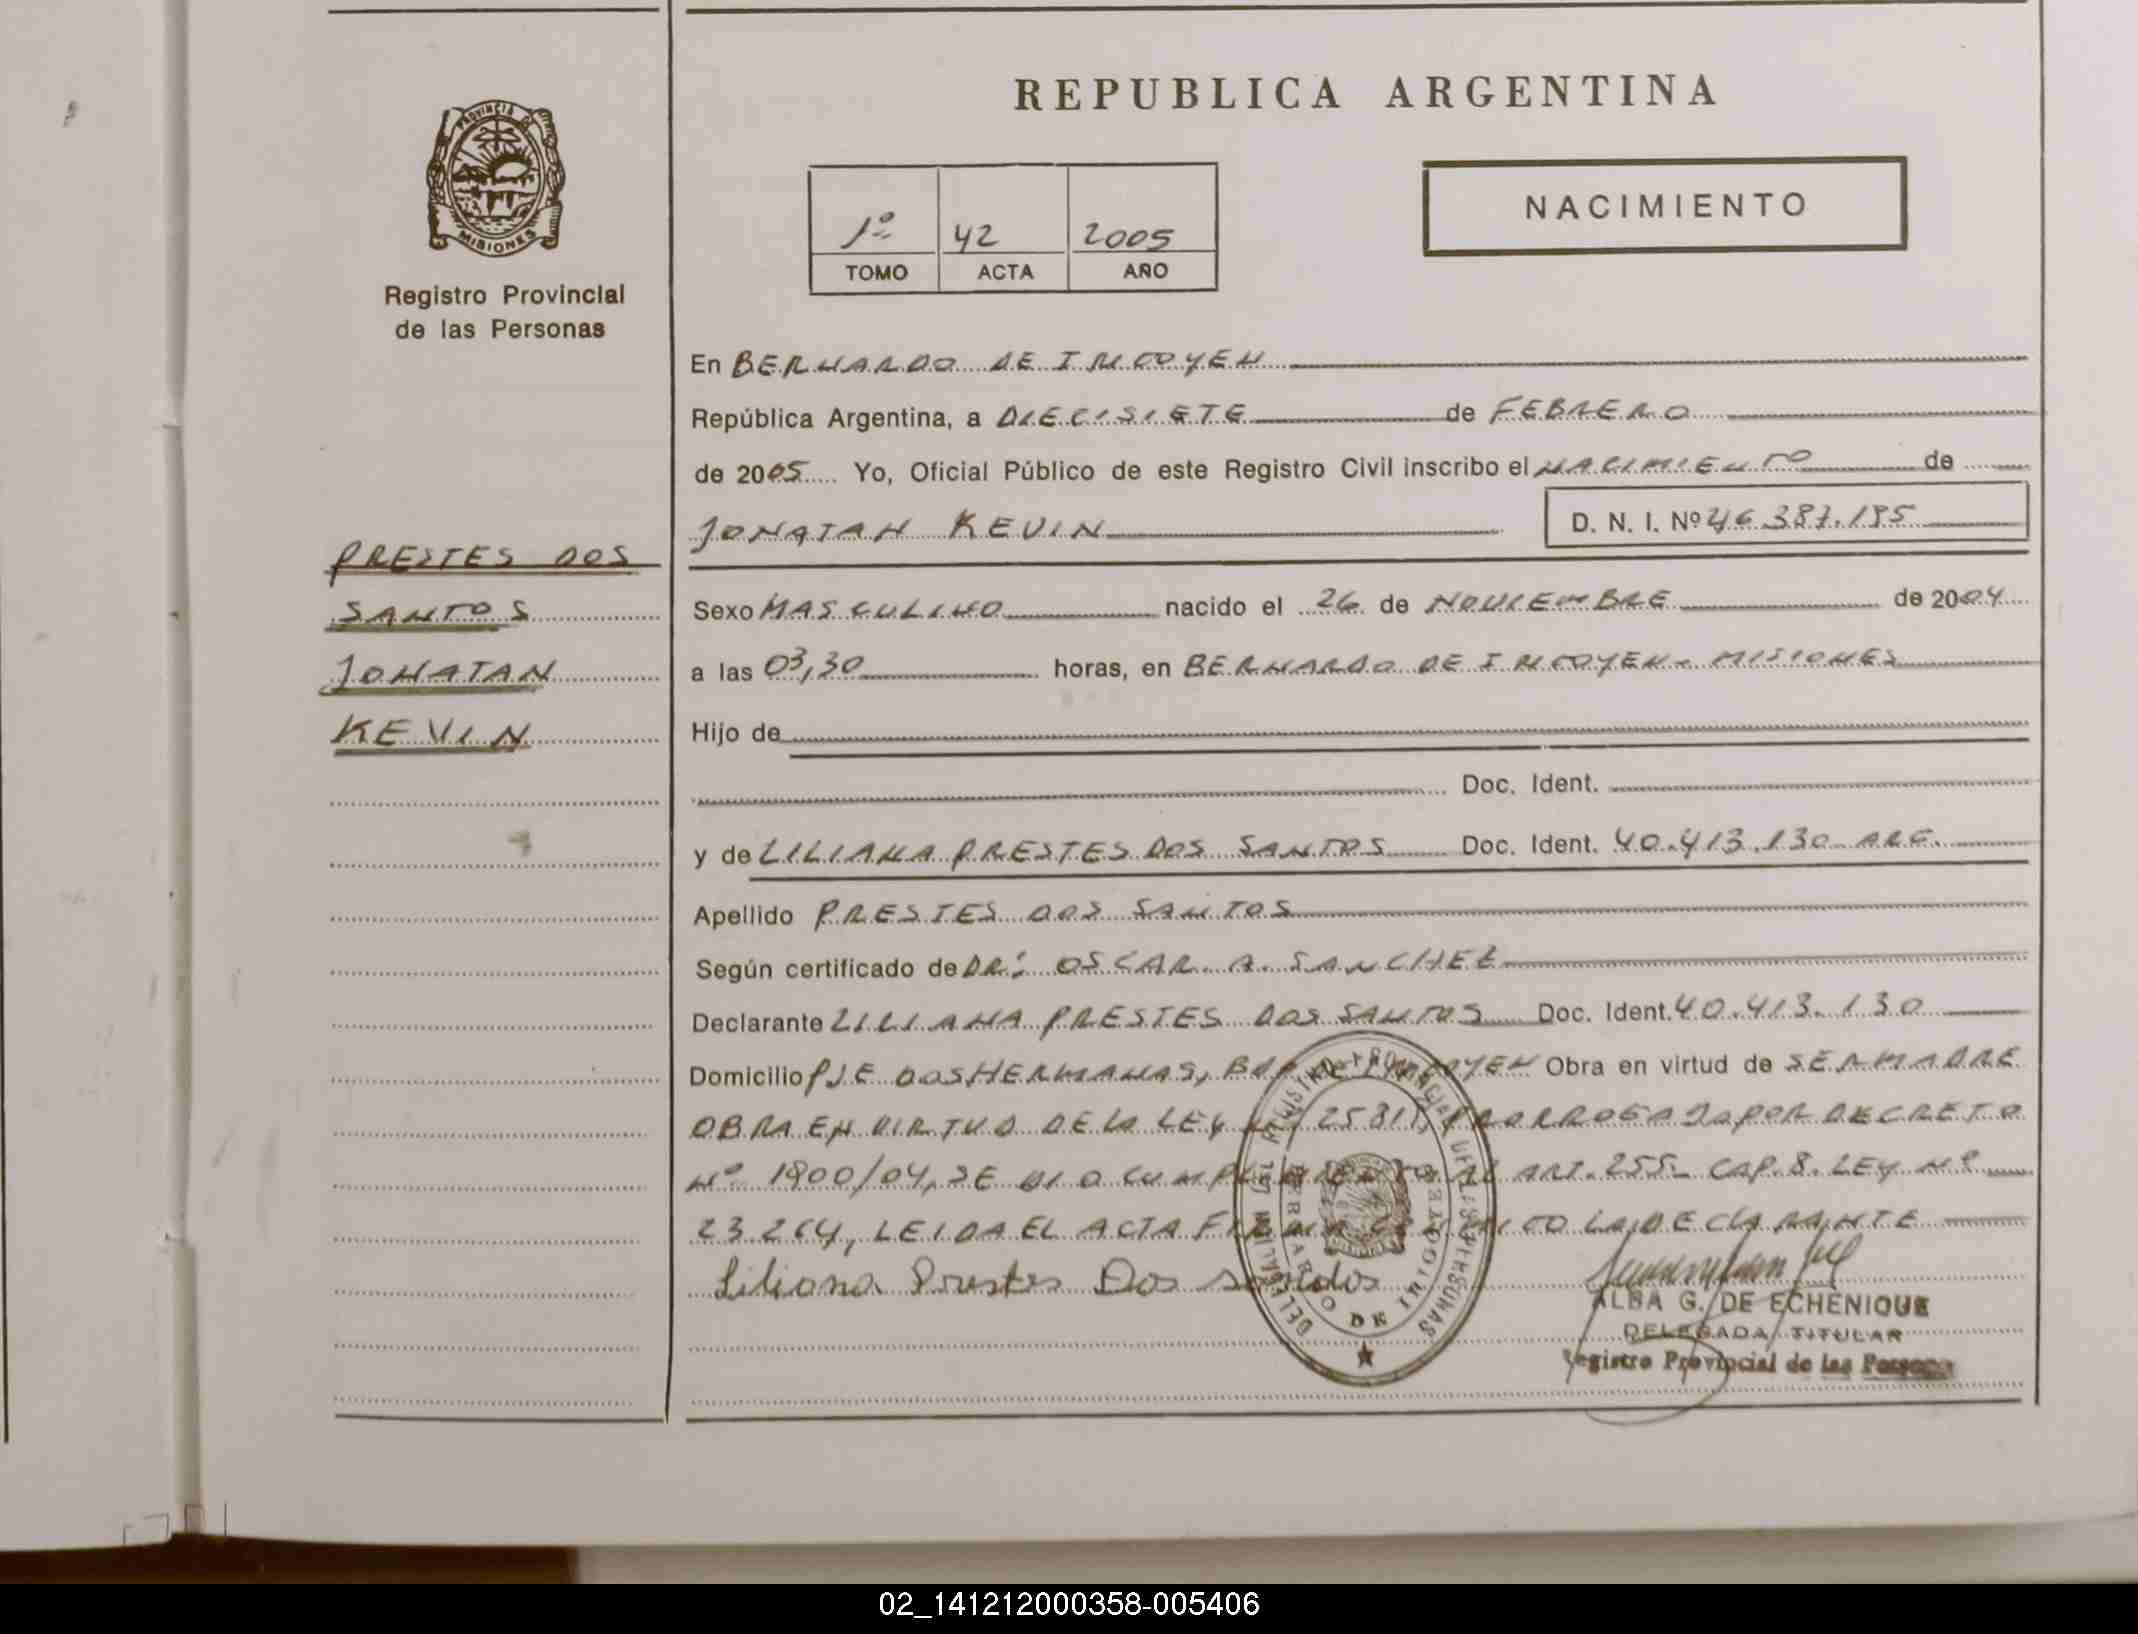 REPUBLICA ARGENTINA
PROVINCIA DE
MISIONES
Registro Provincial
de las Personas
1º 42 2005
TOMO ACTA AÑO
NACIMIENTO
En BERNARDO DE IRIGOYEN
República Argentina, a DIECISIETE de FEBRERO
de 2005 Yo, Oficial Público de este Registro Civil inscribo el NACIMIENTO de
JONATAN KEVIN D. N. I. Nº 46.387.195
PRESTES DOS
SANTOS
JONATAN
KEVIN
Sexo MASCULINO nacido el 26 de NOVIEMBRE de 2004
a las 03,30 horas, en BERNARDO DE IRIGOYEN - MISIONES
Hijo de
Doc. Ident.
y de LILIANA PRESTES DOS SANTOS Doc. Ident. 40.413.130 ARG.
Apellido PRESTES DOS SANTOS
Según certificado de DR: OSCAR. A. SANCHEZ
Declarante LILIANA PRESTES DOS SANTOS Doc. Ident. 40.413.130
Domicilio PJE DOS HERMANAS, Obra en virtud de SER MADRE
OBRA EN VIRTUD DE LA LEY 25819, PRORROGADA POR DECRETO
Nº 1900/04, SE DIO CUMPLIMIENTO AL ART. 255- CAP. 8. LEY Nº
23.264, LEIDA EL ACTA FIRMA CONMIGO LA DECLARANTE
Liliana Prestes Dos santos
ALBA G. DE ECHENIQUE
DELEGADA TITULAR
Registro Provincial de las Personas
REGISTRO PROVINCIAL DE LAS PERSONAS
BERNARDO DE IRIGOYEN
02_141212000358-005406